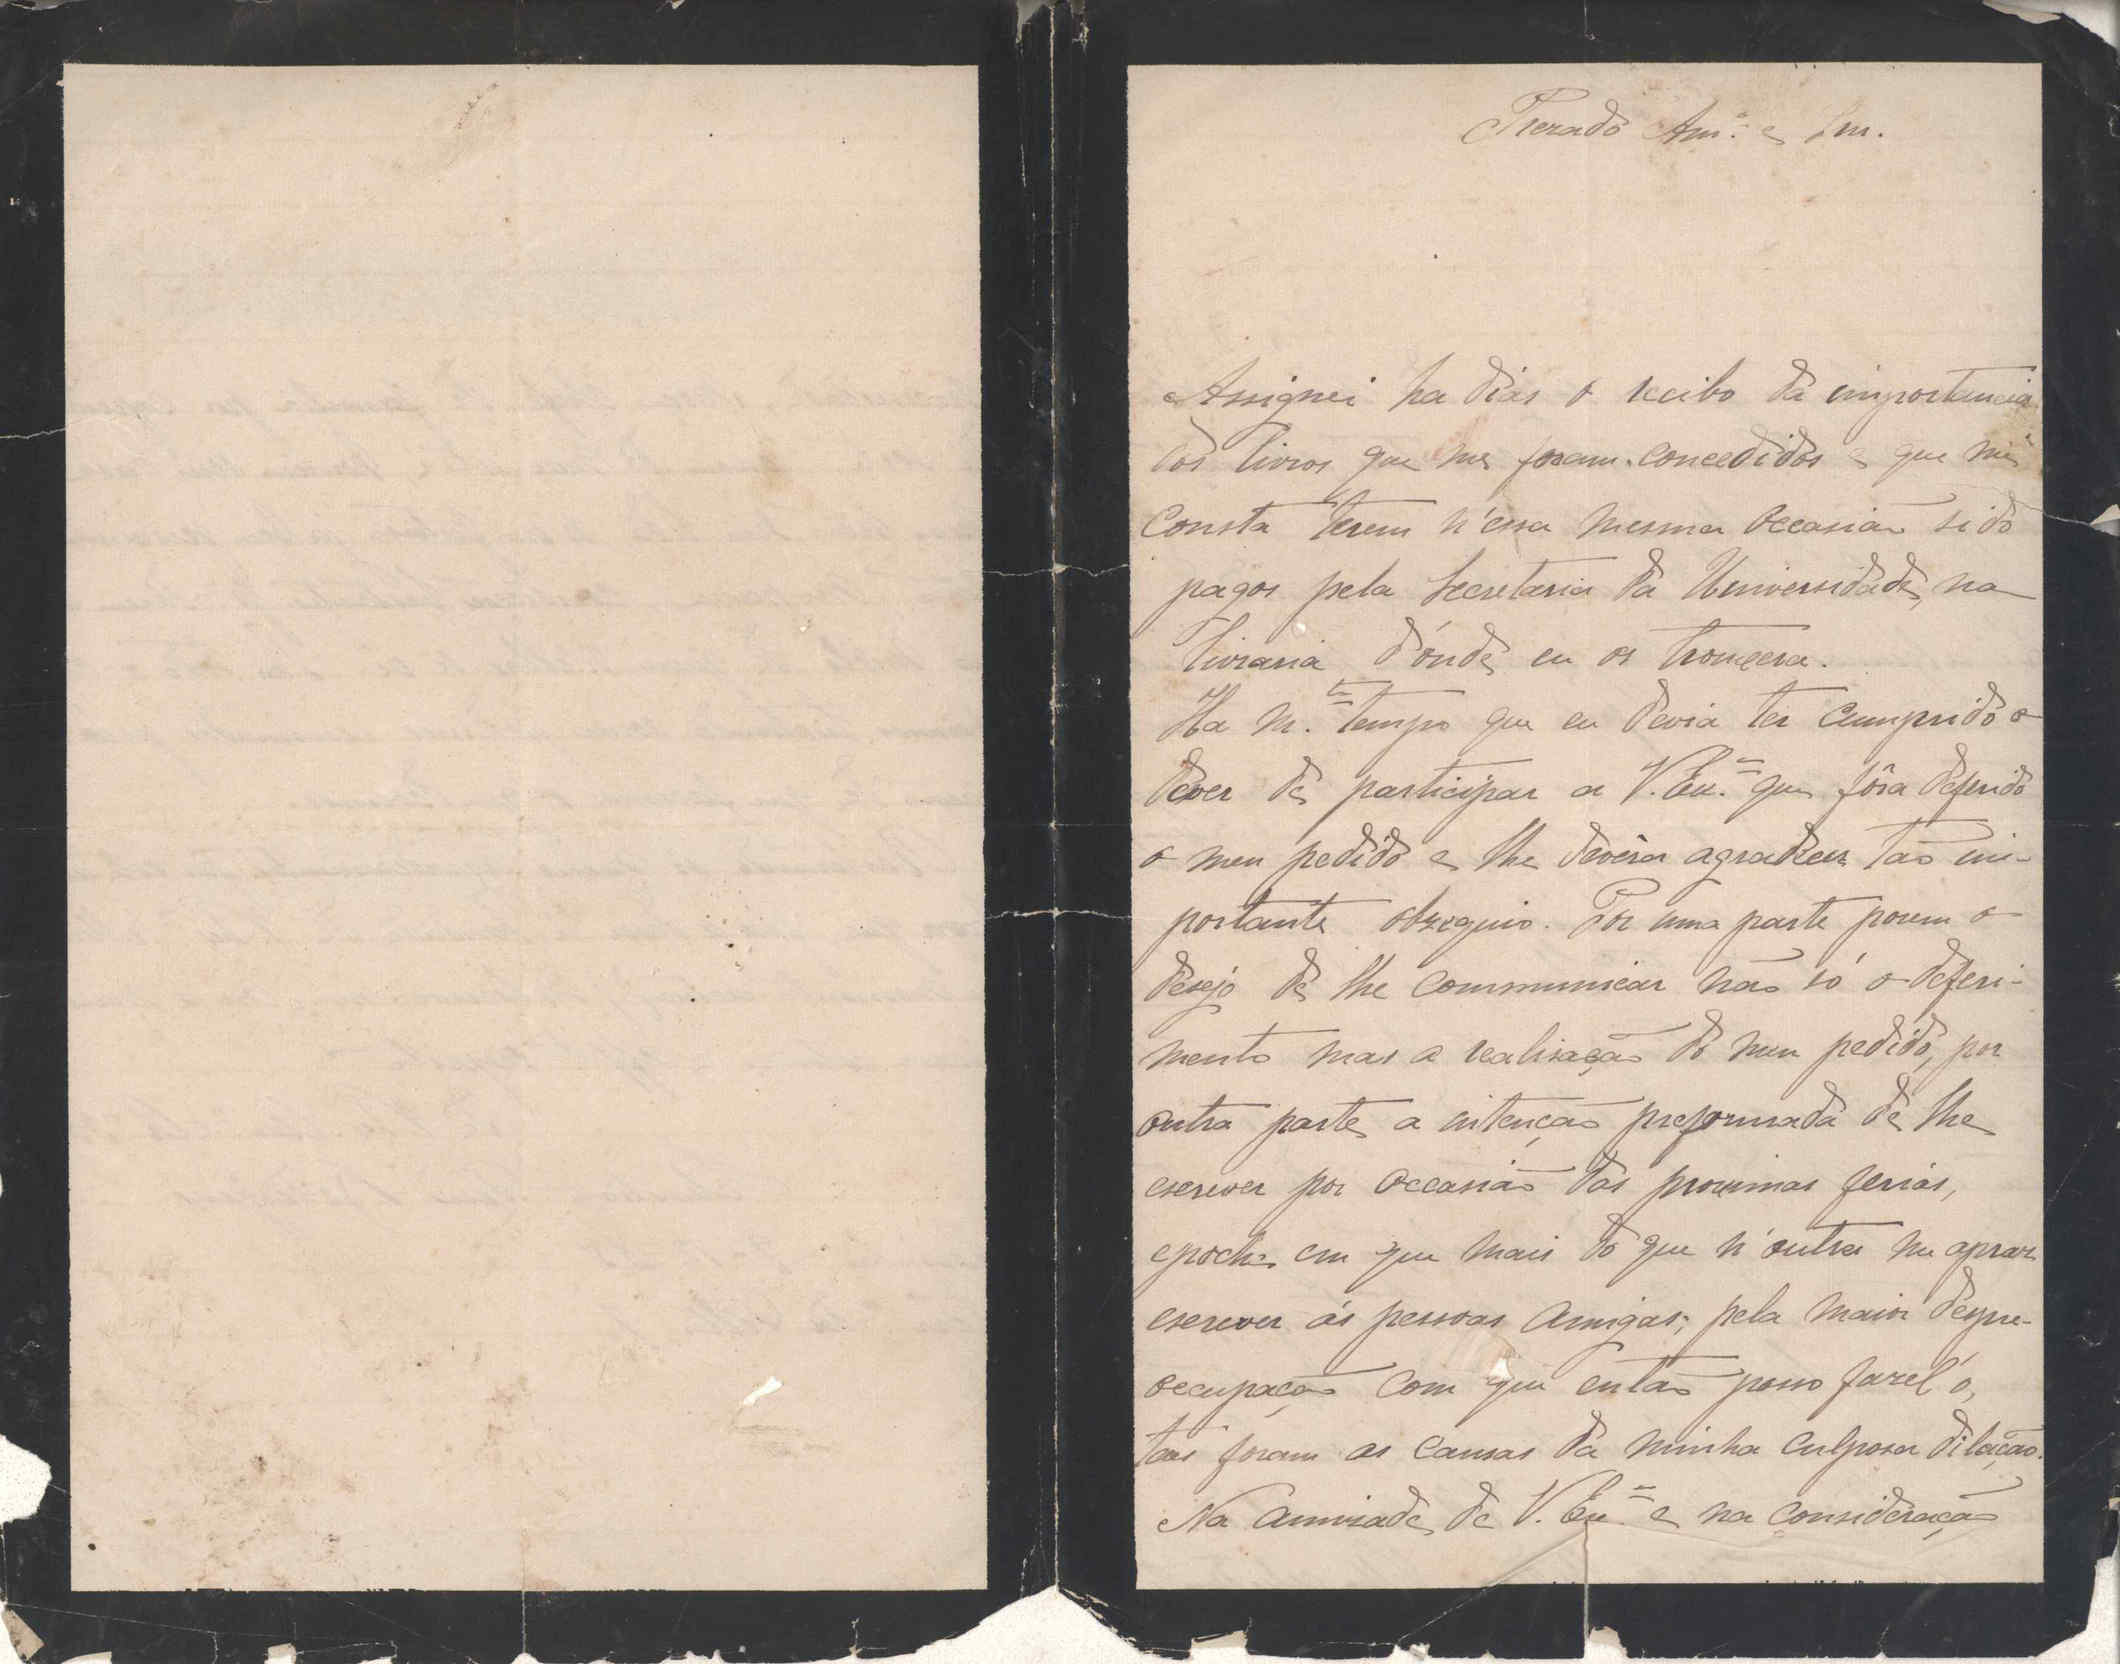 Prezado Am.º e Snr.
Assignei ha dias o recibo da importancia
dos livros que me foram concedidos e que me
consta terem n'essa mesma occasião sido
pagos pela Secretaria da Universidade, na
livraria d'ónde eu os trouxera.
Ha m.to tempo que eu devia ter cumprido o
dever de participar a V. Ex.ª que fôra deferido
o meu pedido e lhe devêra agradecer tão im-
portante obzequio. Por uma parte porem o
desejo de lhe communicar não só o deferi-
mento mas a realisação do meu pedido, por
outra parte a intenção preformada de lhe
escrever por occasião das proximas ferias,
epocha em que mais do que n'outra me apraz
escrever ás pessoas amigas; pela maior despre-
occupação com que então posso fazel'o,
taes foram as causas da minha culposa dilação.
Na amizade de V. Ex.ª e na consideração